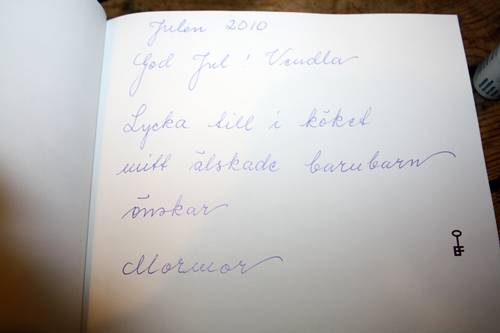 Julen 2010
God Jul! Vendla
Lycka till i köket
mitt älskade barnbarn
önskar
Mormor